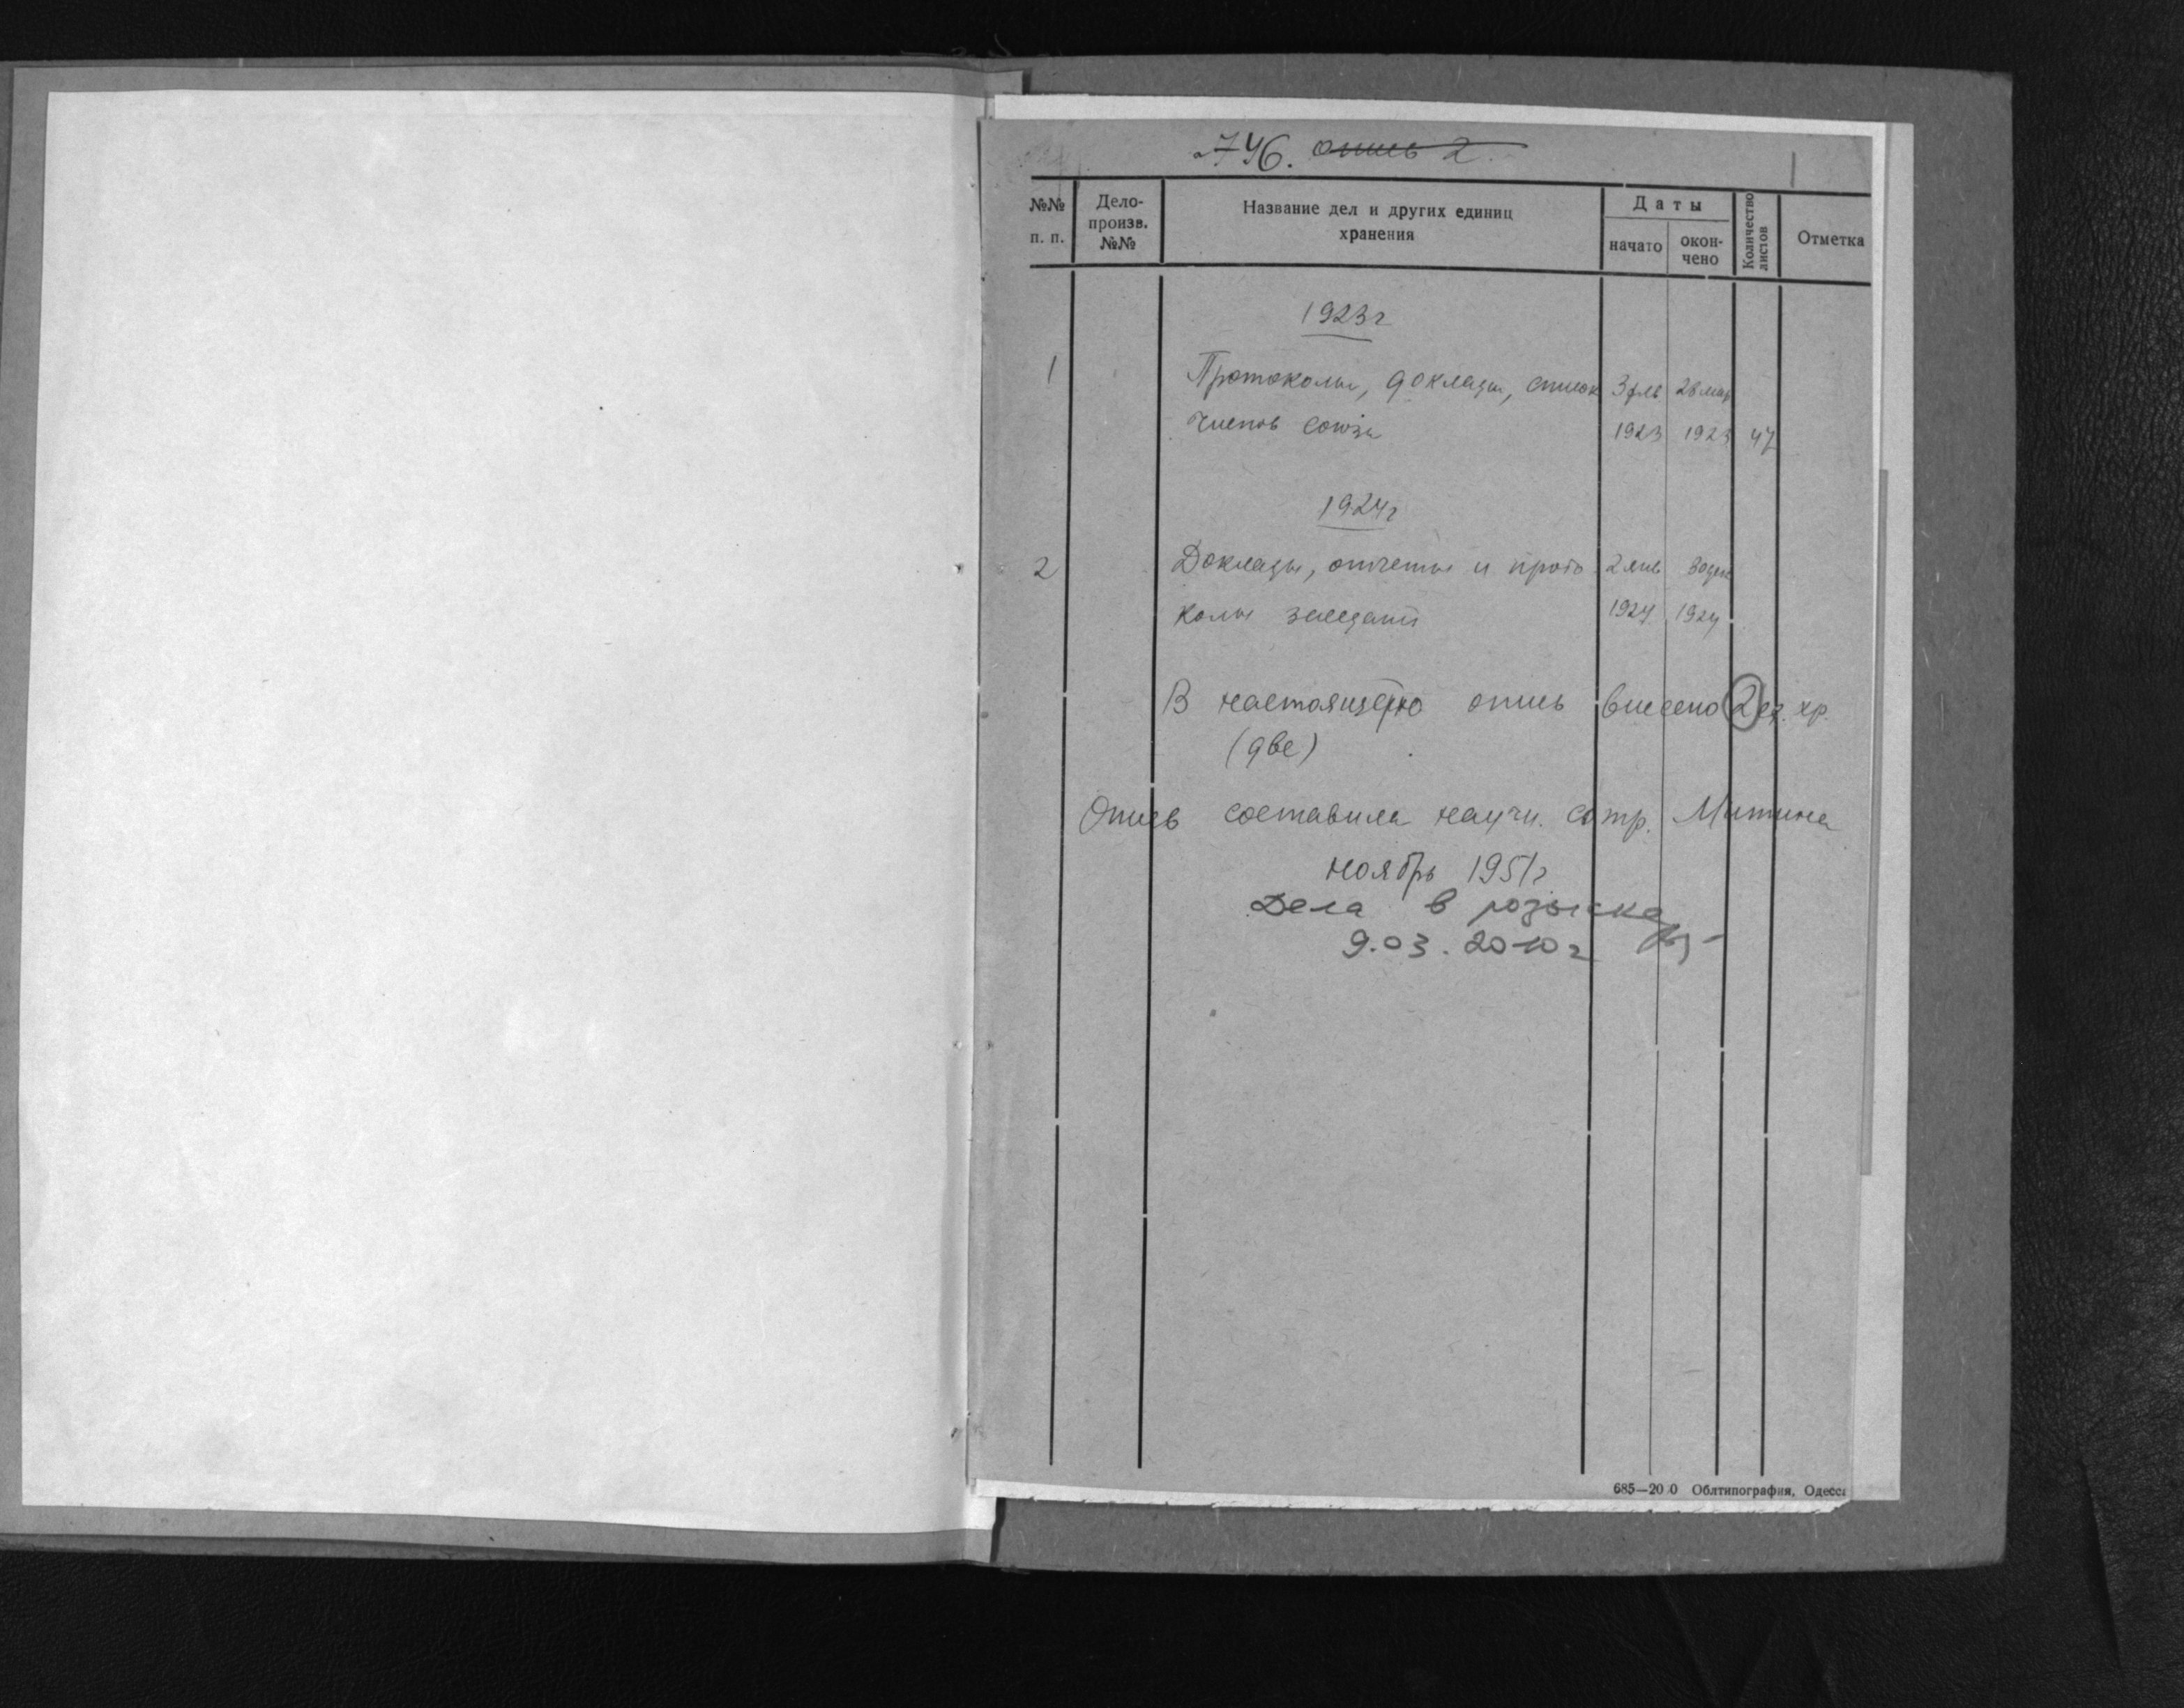 746. опись 2.
№№ п. п.
Дело-произв. №№
Название дел и других единиц хранения
Даты
начато
окончено
Количество листов
Отметка
1923г
1 Протоколы, доклады, список 3 янв 28 мар
членов союза 1923 1923 47
1924г
2 Доклады, отчеты и прото 2 янв 30 дек
колы заседаний 1924 1924
В настоящую опись внесено 2 ед. хр.
(две)
Опись составила научн. сотр. Митина
ноябрь 1951г
Дела в розыске
9.03.2010г
685—20 0 Облтипография, Одесса